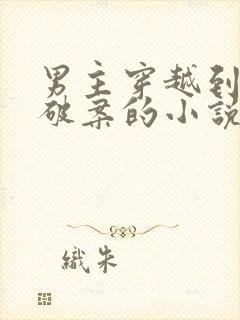 男主穿越到
破案的小说
織朱